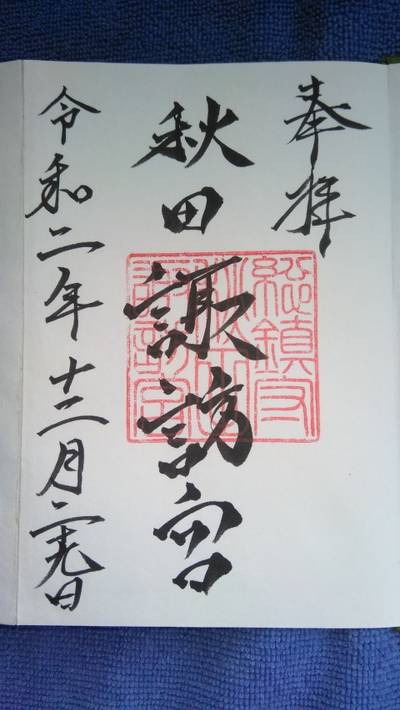 奉拝
秋田諏訪宮
総鎮守
令和二年十二月二十九日